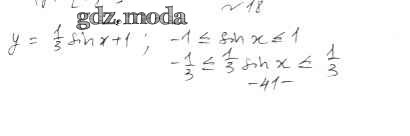 ~ 18
gdz.moda
y = 1/3 sin x + 1 ; -1 ≤ sin x ≤ 1
-1/3 ≤ 1/3 sin x ≤ 1/3
-41-